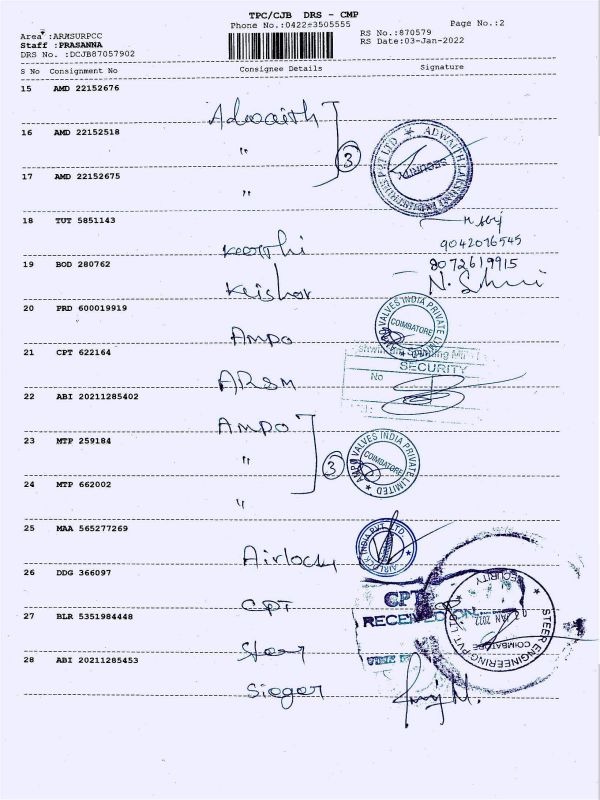 TPC/CJB DRS - CMP
Phone No.:0422-3505555
Page No.:2
Area :ARMSURPCC
RS No.:870579
Staff :PRASANNA
RS Date:03-Jan-2022
DRS No. :DCJB87057902
S No Consignment No Consignee Details Signature
15 AMD 22152676
Adwaith
16 AMD 22152518
"
3
ADWAITH LAKSHMI INDUSTRIES PVT LTD
SECURITY
17 AMD 22152675
"
18 TUT 5851143
Keerthi
9042076545
19 BOD 280762
8072619915
Keishor
N. Shri
20 PRD 600019919
Ampo
AMPO VALVES INDIA PRIVATE LIMITED
COIMBATORE
21 CPT 622164
ARSM
SECURITY
No
22 ABI 20211285402
Ampo
23 MTP 259184
"
3
AMPO VALVES INDIA PRIVATE LIMITED
COIMBATORE
24 MTP 662002
"
25 MAA 565277269
Airlock
AIRLOCK INDIA PVT. LTD.
26 DDG 366097
CPT
CPT
RECEIVED ON
27 BLR 5351984448
Steer
STEER ENGINEERING PVT. LTD.
SECURITY
JAN 2022
COIMBATORE
28 ABI 20211285453
Sieger